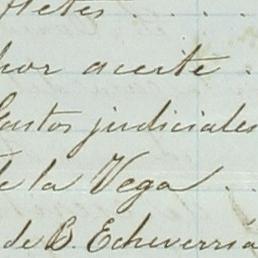 Fletes . . . .
por aceite .
Gastos judiciales
de la Vega . .
de B. Echeverría